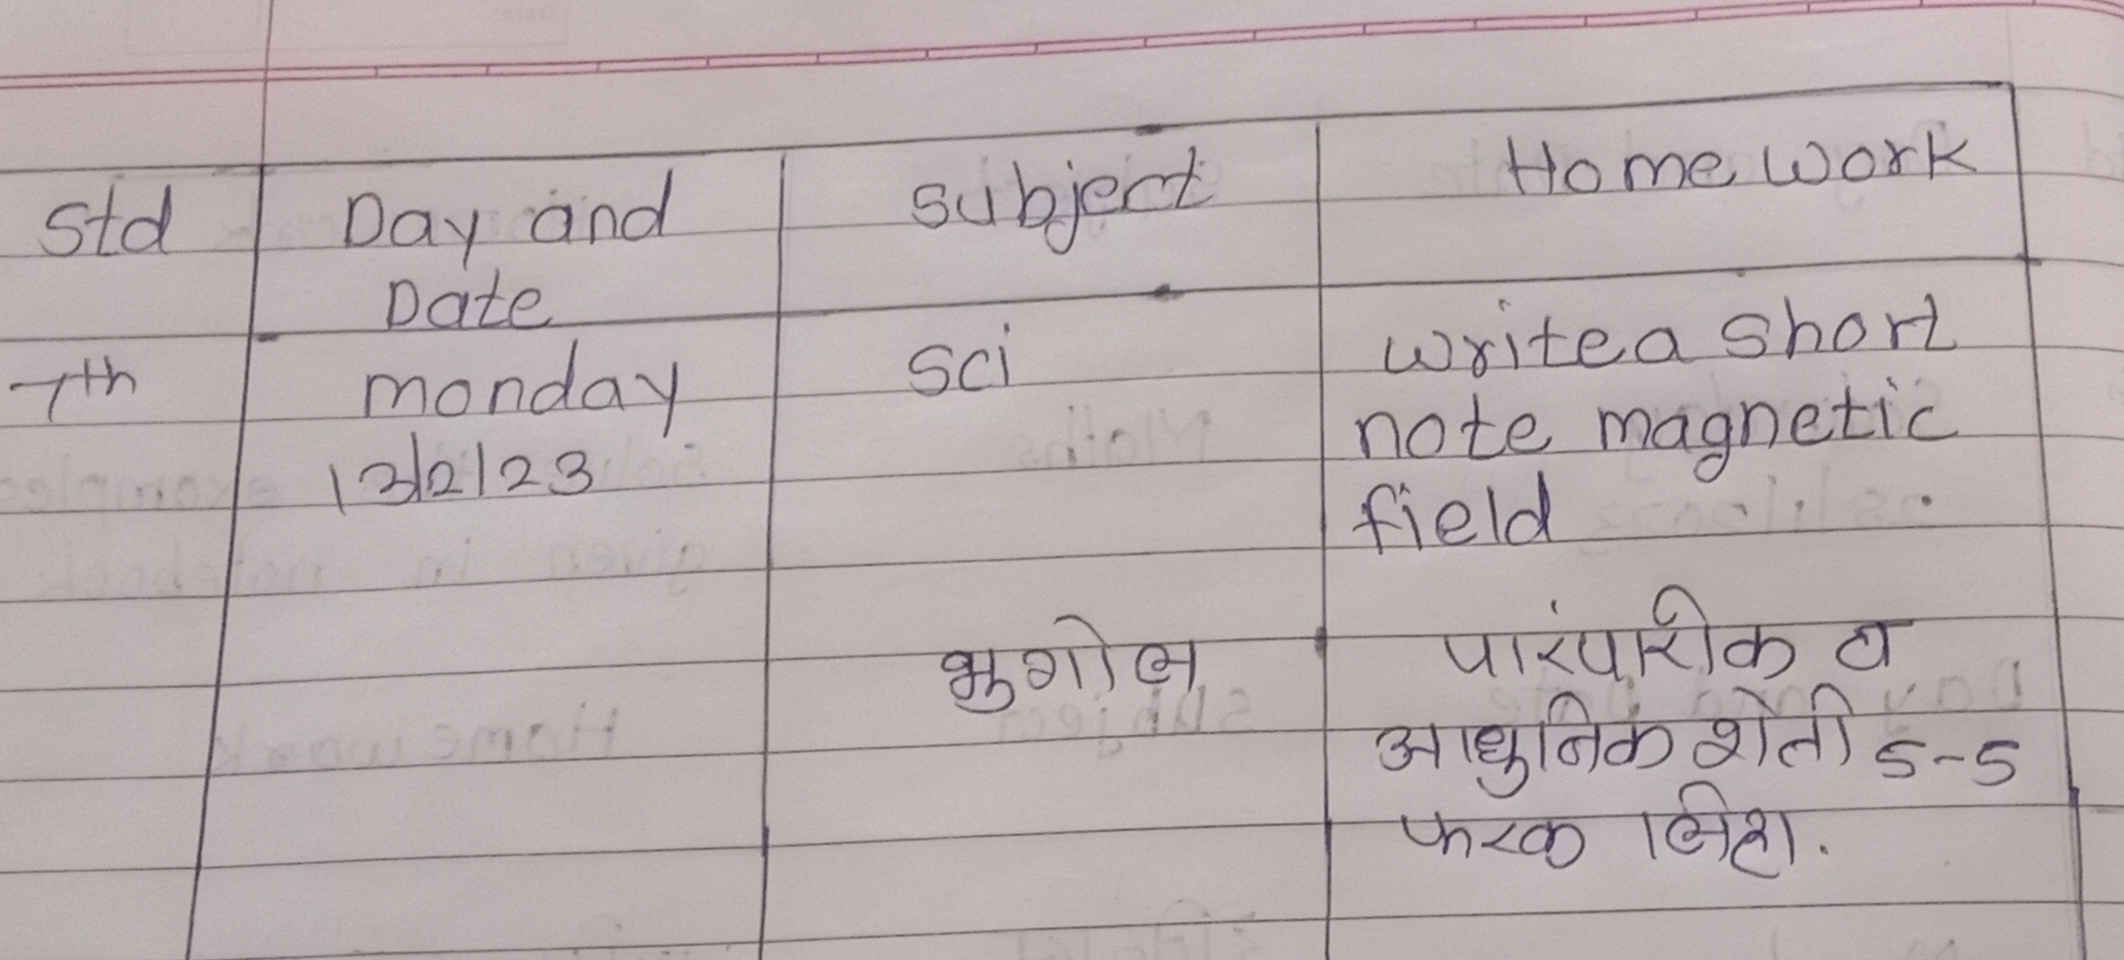 Std Day and Date Subject Home Work
7th monday 13/2/23 Sci write a short
note magnetic
field
भुगोल पारंपारीक व
आधुनिक शेती 5-5
फरक लिहा.